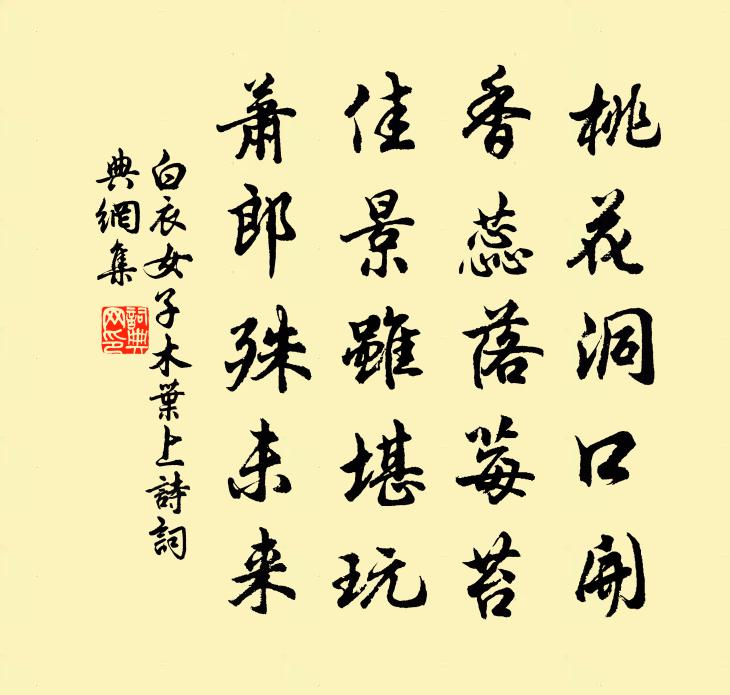 桃花洞口開
香蕊落莓苔
佳景雖堪玩
蕭郎殊未来
白衣女子木葉上詩詞
典網集
詞典
网印